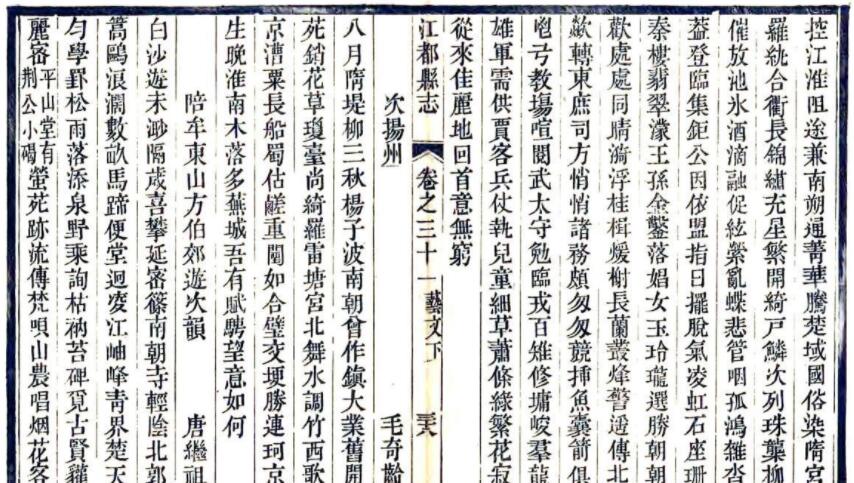 控江淮阻途兼南朔通菁華騰楚域國俗染隋宮
羅紈合衢長錦繡充星繁開綺戶鱗次列珠蘽柳
催放池氷酒滴融促絃縈亂蝶悲管咽孤鴻雜沓
葢登臨集鉅公因依盟指日擺脫氣凌虹石座珊
秦樓翡翠濛王孫金鑿落娼女玉玲瓏選勝朝朝
歡處處同晴漪浮桂楫煖榭長蘭叢烽警遥傳北
歘轉東庶司方悄悄諸務頗匆匆競揷魚囊箭俱
咆弓教場喧閱武太守勉臨戎百雉修墉峻羣龍
雄軍需供賈客兵仗執兒童細草蕭條綠繁花寂
從來佳麗地回首意無窮
江都縣志 卷之三十一 藝文下 三六
次揚州 毛奇齡
八月隋堤柳三秋楊子波南朝曾作鎮大業舊開
苑銷花草瓊臺尚綺羅雷塘宮北舞水調竹西歌
京漕粟長船蜀估鹺重闉如合璧交埂勝連珂京
生晚淮南木落多蕪城吾有賦騁望意如何
陪牟東山方伯郊遊次韻 唐繼祖
白沙遊未渺隔歲喜攀延密篠南朝寺輕陰北郭
篙鷗浪濶數畝馬蹄便堂迥凌江岫峰青界楚天
勻學罫松雨落添泉野乘詢枯衲苔碑覓古賢蘿
麗密平山堂有荆公小碣螢苑跡流傳梵唄山農唱烟花客